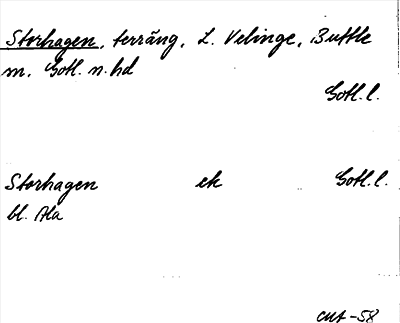 Storhagen, terräng, L. Velinge, Buttle
m. Gotl. n. hd
Gotl. l.
Storhagen ek Gotl. l.
bl. Ala
-58